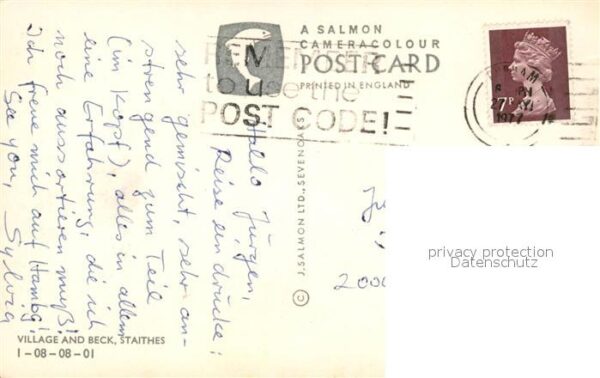 A SALMON
CAMERACOLOUR
POST CARD
PRINTED IN ENGLAND
REMEMBER
to use the
POST CODE!
7P
1977
Hallo Jürgen,
Reiseeindrücke:
sehr gemischt, sehr an-
strengend zum Teil
(im Kopf), alles in allem
eine Erfahrung, die ich
noch aussortieren muß!
Ich freue mich auf Hambg!
See you, Sylvia
© J. SALMON LTD., SEVENOAKS
2000
privacy protection
Datenschutz
VILLAGE AND BECK, STAITHES
1-08-08-01